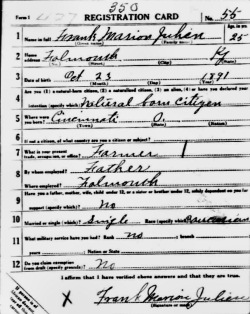 350
Form 1
REGISTRATION CARD
No. 55
1 Name in full Frank Marion Julien
Age, in yrs. 25
2 Home address Falmouth Ky
3 Date of birth Oct 23 1891
4 Are you (1) a natural-born citizen, (2) a naturalized citizen, (3) an alien, (4) or have you declared your
intention (specify which)? Natural born Citizen
5 Where were you born? Cincinnati O.
6 If not a citizen, of what country are you a citizen or subject?
7 What is your present trade, occupation, or office? Farmer
8 By whom employed? Father
Where employed? Falmouth
9 Have you a father, mother, wife, child under 12, or a sister or brother under 12, solely dependent on you for
support (specify which)? No
10 Married or single (which)? Single Race (specify which)?
11 What military service have you had? Rank no branch
years Nation or State
12 Do you claim exemption from draft (specify grounds)? No
I affirm that I have verified above answers and that they are true.
X Frank Marion Julien
(Signature or mark)